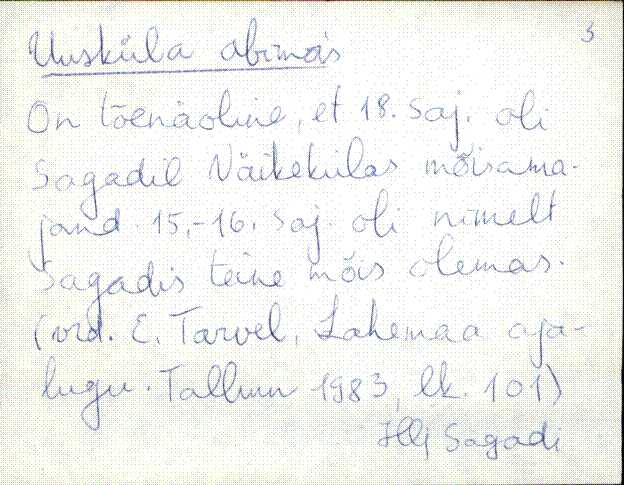 3
Uusküla abimõis
On tõenäoline, et 18. saj. oli
Sagadil Väikekülas mõisama-
jand. 15.-16. saj. oli nimelt
Sagadis teine mõis olemas.
(vrd. E. Tarvel, Lahemaa aja-
lugu. Tallinn 1983, lk. 101)
Hlj Sagadi